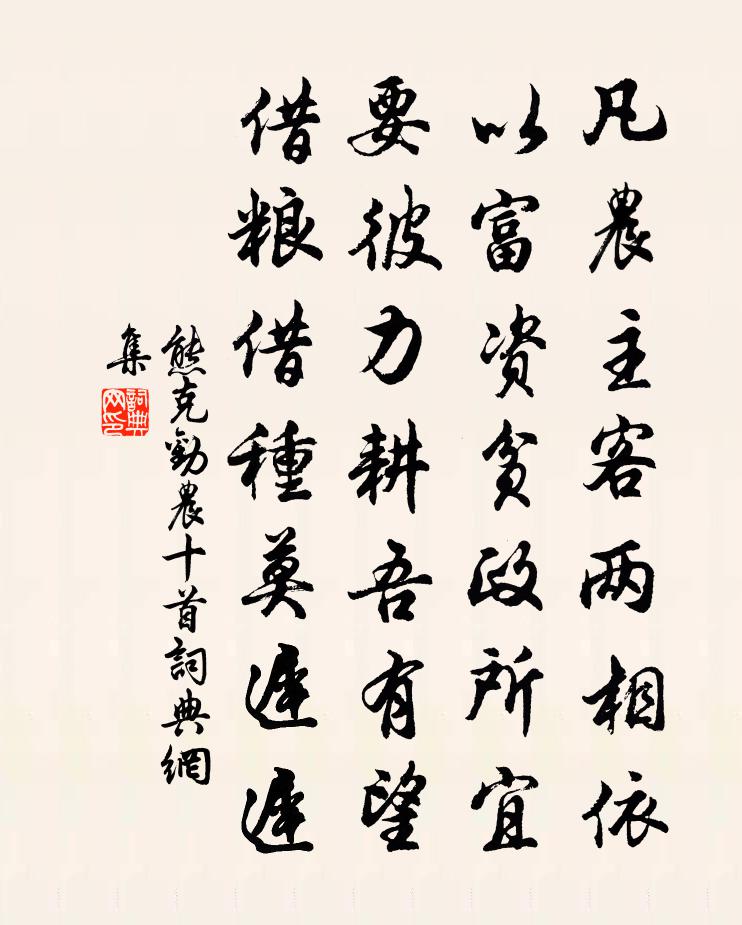 凡農主客两相依
以富资贫政所宜
要彼力耕吾有望
借粮借種莫遅遅
熊克勸農十首詞典網
集
詞典
网印